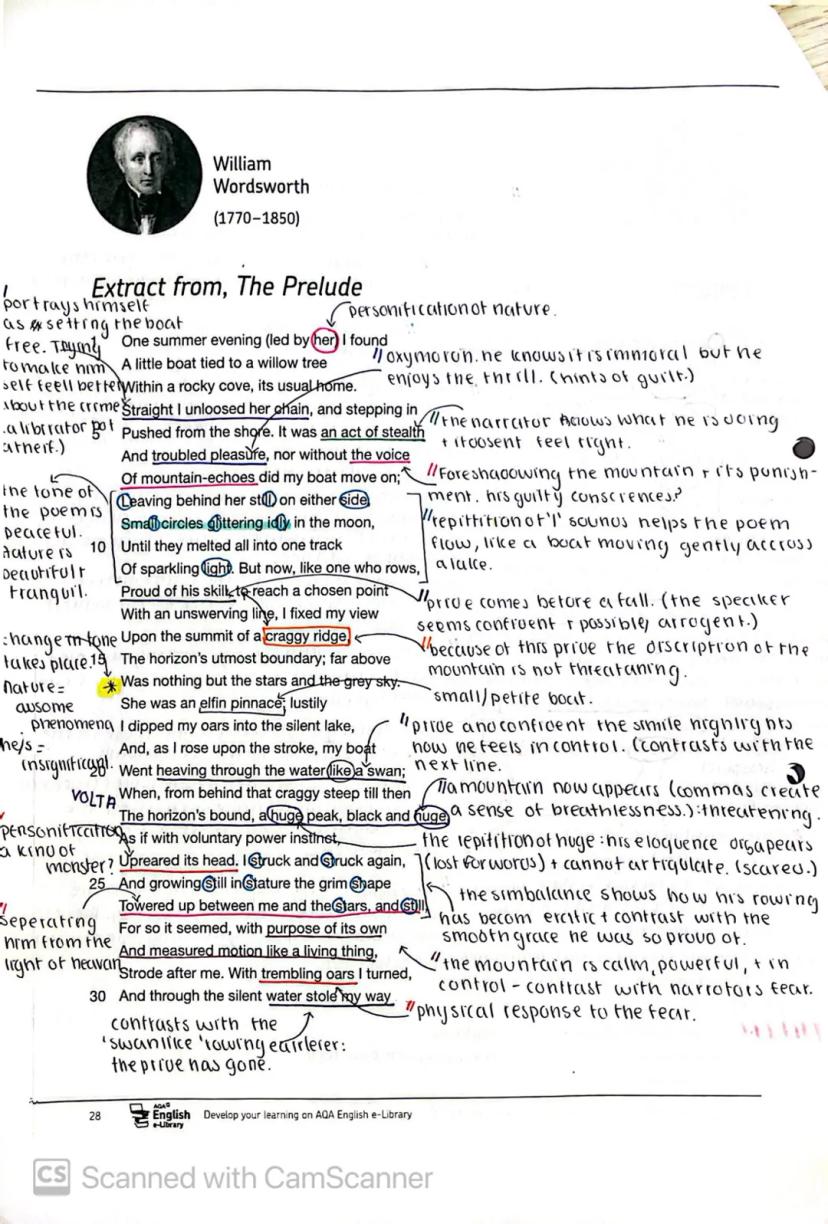 William
Wordsworth
(1770–1850)
Extract from, The Prelude
portrays himself
as setting the boat
free. Trying
to make him
self feell better
about the crime
personification of nature.
One summer evening (led by her) I found
A little boat tied to a willow tree
Within a rocky cove, its usual home.
Straight I unloosed her chain, and stepping in
Pushed from the shore. It was an act of stealth
And troubled pleasure, nor without the voice
Of mountain-echoes did my boat move on;
Leaving behind her still on either side,
Small circles glittering idly in the moon,
10 Until they melted all into one track
Of sparkling light. But now, like one who rows,
Proud of his skill, to reach a chosen point
With an unswerving line, I fixed my view
Upon the summit of a craggy ridge,
15 The horizon's utmost boundary; far above
Was nothing but the stars and the grey sky.
She was an elfin pinnace; lustily
I dipped my oars into the silent lake,
And, as I rose upon the stroke, my boat
20 Went heaving through the water like a swan;
When, from behind that craggy steep till then
The horizon's bound, a huge peak, black and huge,
As if with voluntary power instinct,
Upreared its head. I struck and struck again,
25 And growing still in stature the grim shape
Towered up between me and the stars, and still,
For so it seemed, with purpose of its own
And measured motion like a living thing,
Strode after me. With trembling oars I turned,
30 And through the silent water stole my way
oxymoron. he knows it is immoral but he
enjoys the thrill. (hints of guilt.)
the narrator knows what he is doing
+ it doosent feel right.
Foreshadowing the mountain + its punish-
ment. his guilty consciences?
repitition of 'l' sounds helps the poem
flow, like a boat moving gently accross
a lake.
pride comes before a fall. (the speaker
seems confident + possibley arrogent.)
because of this pride the discription of the
mountain is not threataning.
small/petite boat.
pride and confident the simile highlights
how he feels in control. (contrasts with the
next line.
a mountain now appears (commas create
a sense of breathlessness.) :threatening.
the repitition of huge : his eloquence disapears
(lost for words) + cannot articulate. (scared.)
the simbalance shows how his rowing
has becom eratic + contrast with the
smooth grace he was so proud of.
the mountain is calm, powerful, + in
control - contrast with narrotors fear.
physical response to the fear.
the tone of
the poem is
peaceful.
Nature is
beautiful +
tranquil.
change in tone
takes place.
nature=
awsome
phenomena
he/s =
insignificant.
VOLTA
personification
a kind of
monster?
seperating
him from the
light of heavan
contrasts with the
'swanlike' rowing earlier:
the pride has gone.
28
AQA
English
e-Library
Develop your learning on AQA English e-Library
CS Scanned with CamScanner